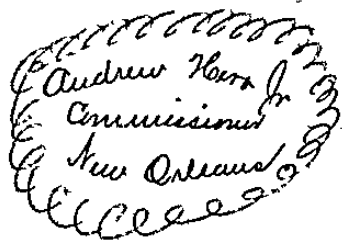 Andrew Hero Jr
Commissioner
New Orleans